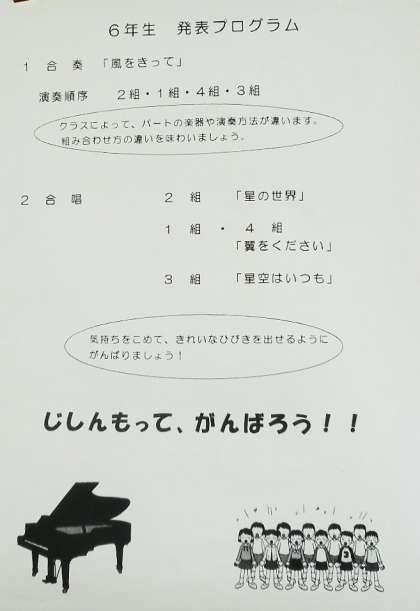 ６年生　発表プログラム
１　合　奏　「風をきって」
演奏順序　　２組・１組・４組・３組
クラスによって、パートの楽器や演奏方法が違います。
組み合わせ方の違いを味わいましょう。
２　合　唱　　２　組　「星の世界」
１　組　・　４　組
「翼をください」
３　組　「星空はいつも」
気持ちをこめて、きれいなひびきを出せるように
がんばりましょう！
じしんもって、がんばろう！！
3